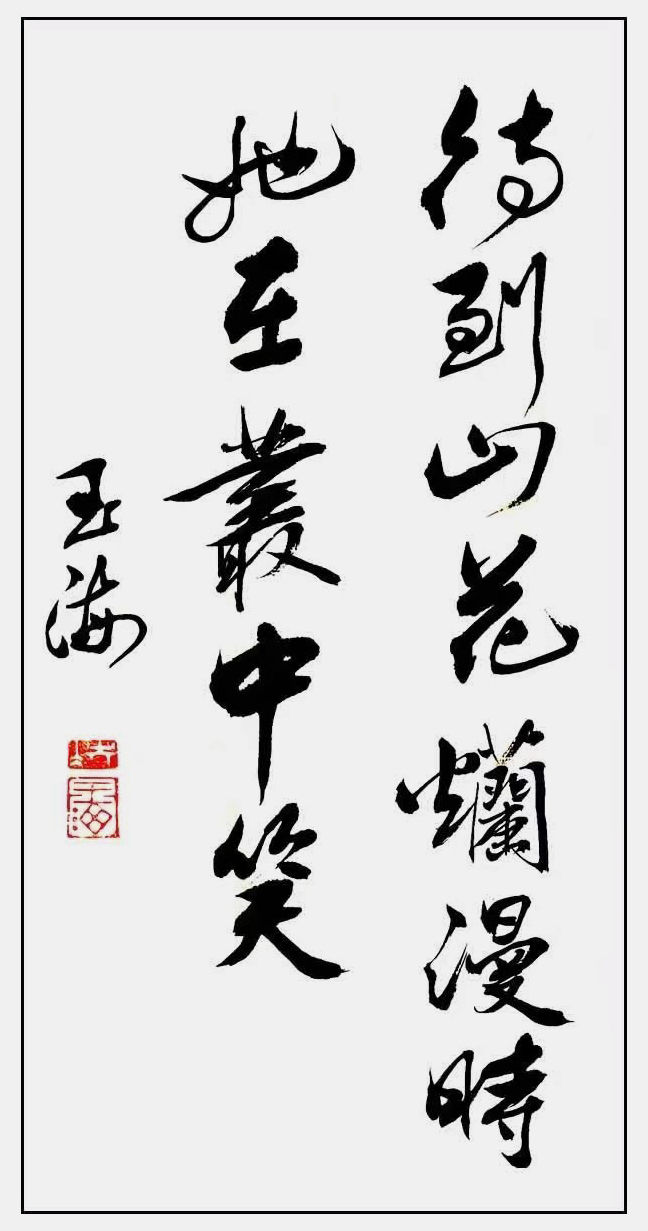 待到山花爛漫時
她在叢中笑
玉海